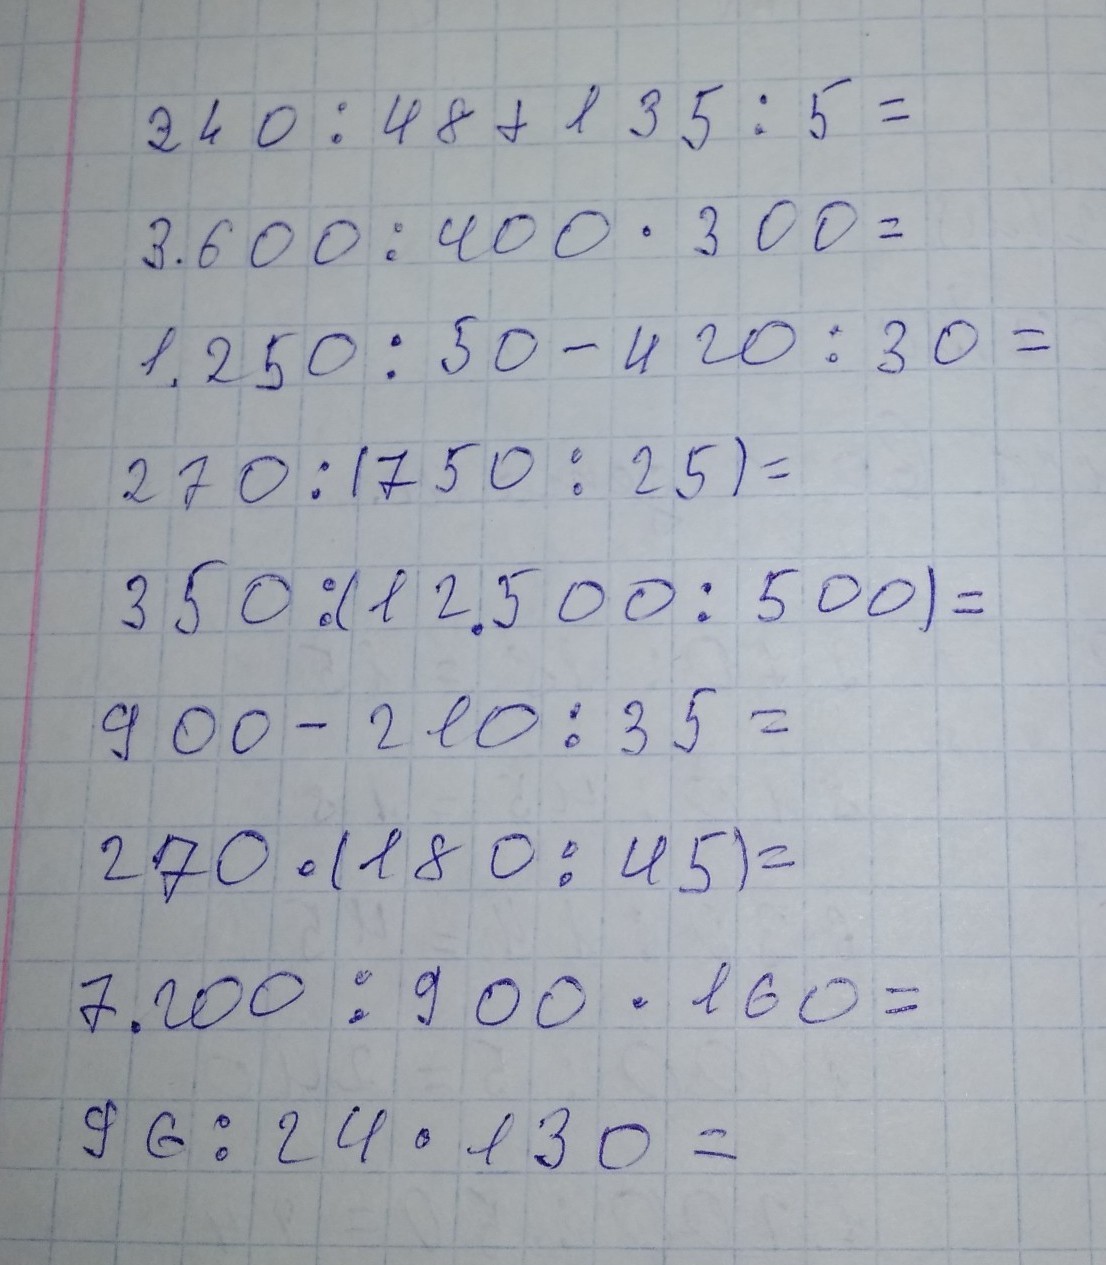 240:48+135:5=
3.600:400·300=
1.250:50-420:30=
270:(750:25)=
350:(12.500:500)=
900-210:35=
270·(180:45)=
7.200:900·160=
96:24·130=